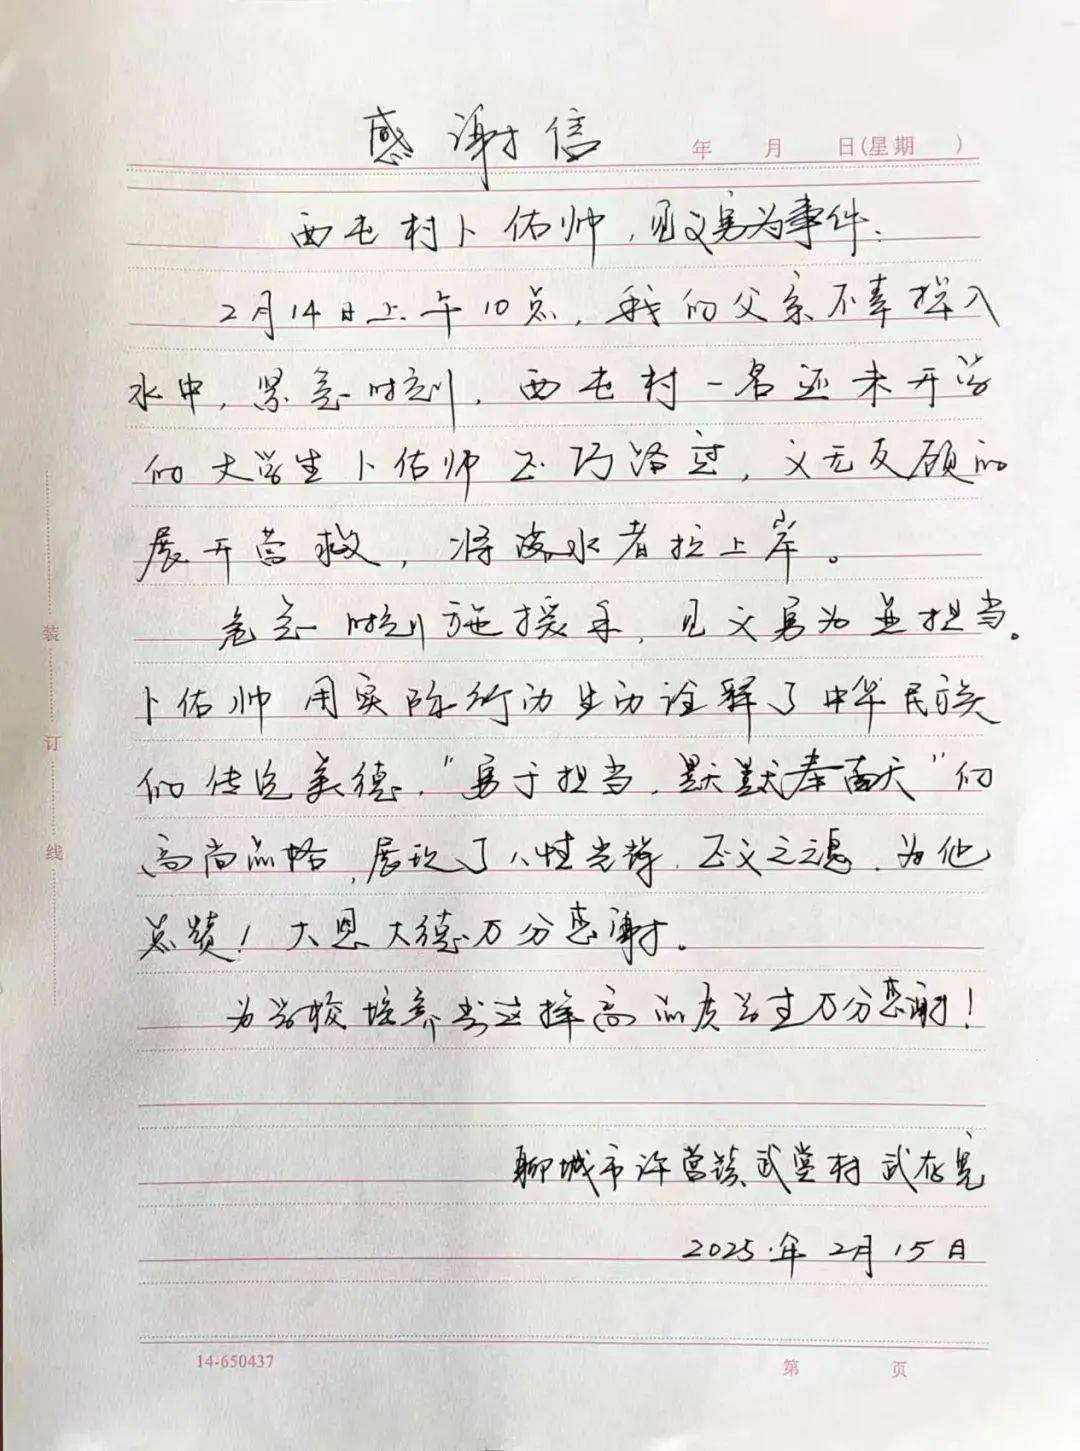 感谢信
年 月 日(星期 )
西屯村卜佑帅,见义勇为事件:
2月14日上午10点,我的父亲不幸掉入
水中,紧急时刻,西屯村一名还未开学
的大学生卜佑帅正巧路过,义无反顾的
展开营救,将落水者拉上岸。
危急时刻施援手,见义勇为显担当。
卜佑帅用实际行动生动诠释了中华民族
的传统美德,"勇于担当,默默奉献"的
高尚品格,展现了人性光辉,正义之魂,为他
点赞!大恩大德万分感谢。
为学校培养出这样高品质学生万分感谢!
聊城市许营镇武堂村 武存
2025.年2月15日
装
订
线
14-650437
第 页